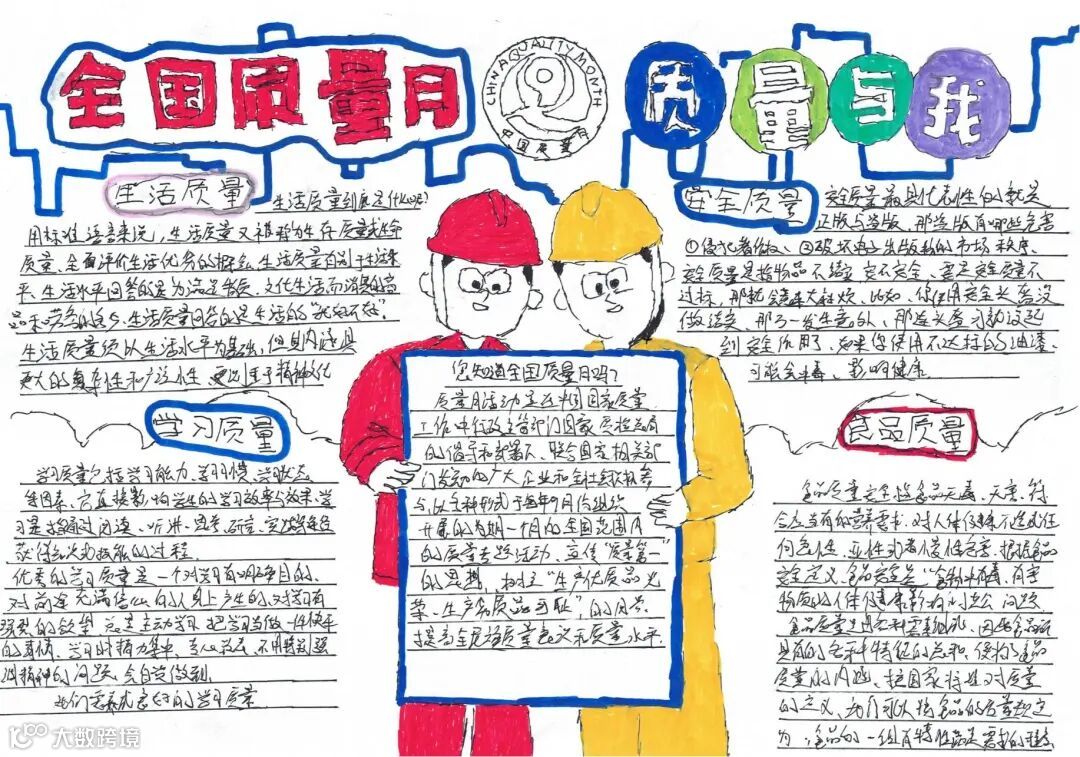 全国质量月
CHINA QUALITY MONTH
中国质量月
质量与我
生活质量
生活质量到底是什么呢?
用标准语言来说,生活质量又被称为生存质量或生命
质量、全面评价生活优劣的概念,生活质量有别于生活水
平、生活水平回答的是为满足物质、文化生活而消费的产
品和劳务的多与少,生活质量回答的是生活的“好不好”。
生活质量须以生活水平为基础,但其内涵具
更大的复杂性和广泛性,更侧重于精神文化
学习质量
学习质量包括学习能力、学习习惯、学习状态
等因素、它直接影响学生的学习效率与效果、学
习是指通过阅读、听讲、思考、研究、实践等途径
获得知识和技能的过程.
优秀的学习质量是一个对学习有明确目的、
对前途充满信心的人身上产生的、对学习有
强烈的欲望
主动学习、把学习当做一件快乐
的事情、学习时精力集中、专心致志、不用特别强
调精神的问题、会自觉做到.
我们要养成良好的学习质量
您知道全国质量月吗?
质量月活动是在中国国家质量
工作中行政主管部门国家质检总局
的倡导和部署下、联合国家相关部
门发动的广大企业和全社会积极参
与、以各种形式于每年9月份组织
开展的为期一个月的全国范围内
的质量专题活动、宣传“质量第一”
的思想,树立“生产优质品光
荣、生产劣质品可耻”的风尚、
提高全民族质量意识和质量水平.
安全质量
安全质量最具代表性的就是
正版与盗版、那盗版有哪些危害
①侵犯著作权、②破坏电子出版物的市场秩序.
安全质量是指物品不结实、它不安全、要是安全质量不
过标,那就会造成大麻烦、比如、你使用安全头盔没
做结实、那万一发生意外、那些头盔可就没起
到安全作用了、如果你使用不达标的油漆、
可能会中毒、影响健康.
食品质量
食品质量安全指食品无毒、无害、符
合应当有的营养要求、对人体健康不造成任
何急性、亚性或者慢性危害、根据食品
安全定义、食品安全是“食物中有毒、有害
物质对人体健康影响的公共
问题.
食品质量是由各种要素组成、因此食品所
具有的各种特征的总和、便构成食品
质量的内涵、按国家标准对质量
的定义、我们可以将食品的质量规定
为:食品的一组固有特性满足要求的程度.
大数跨境